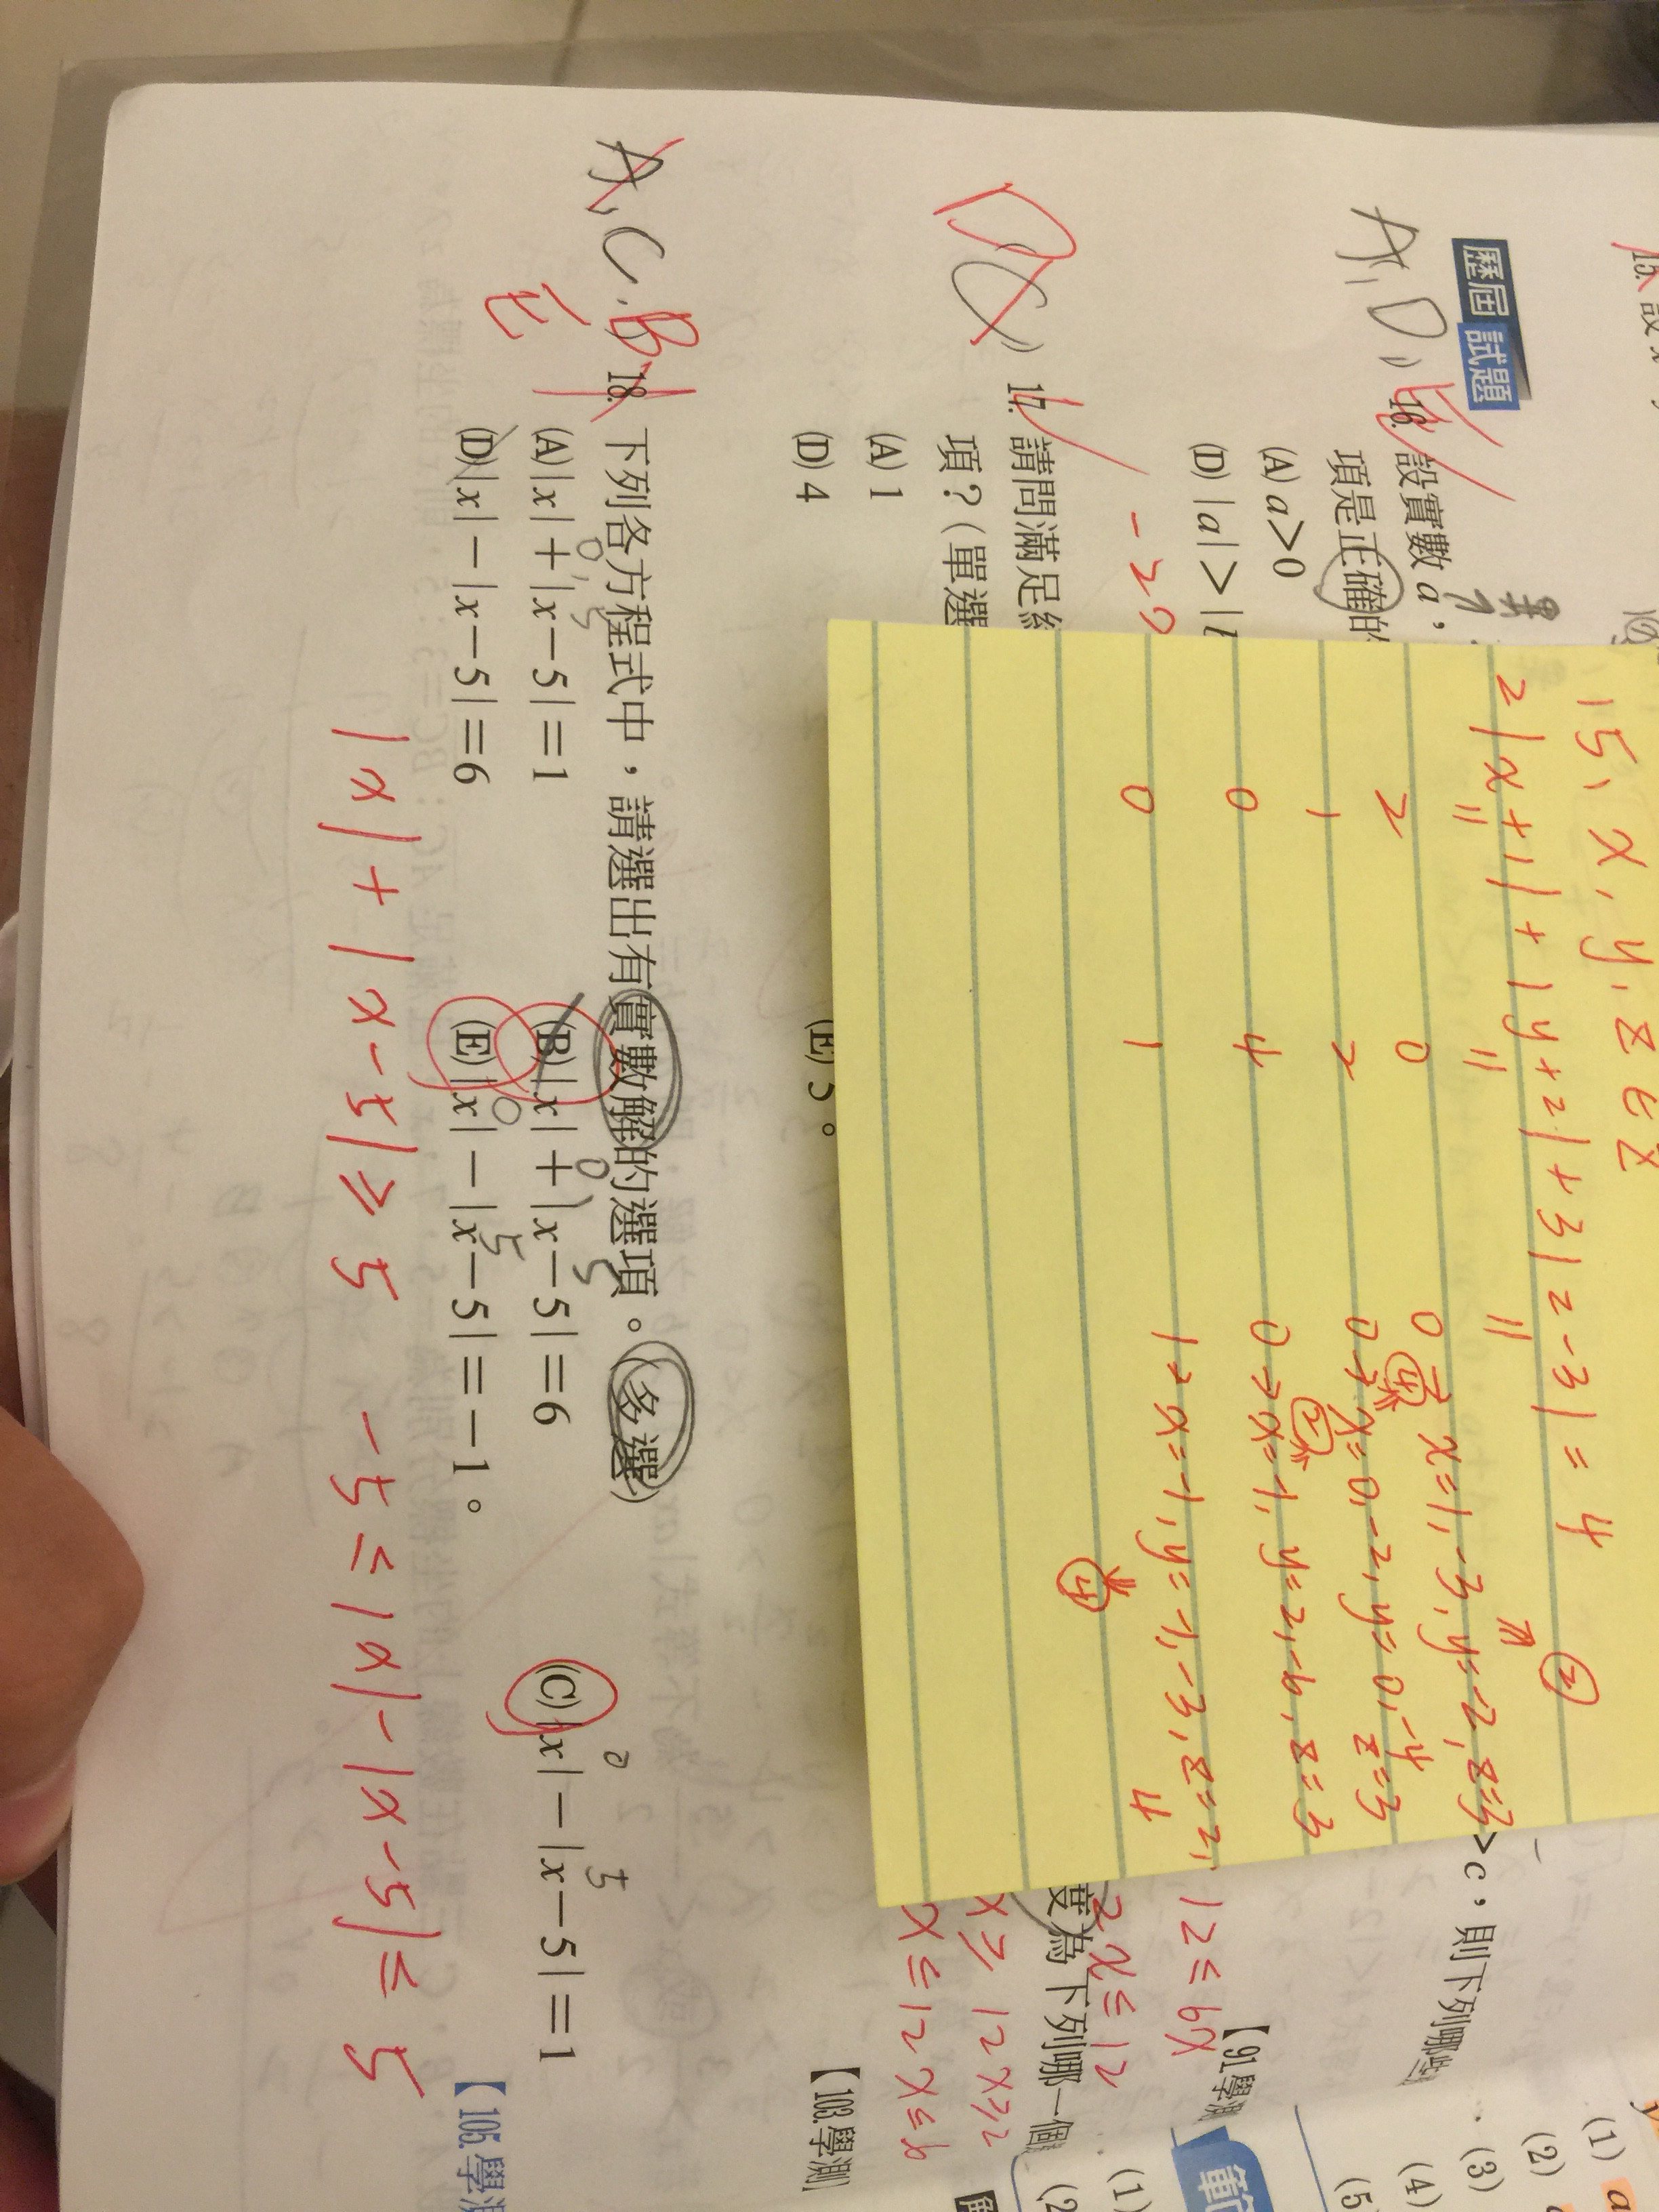 歷屆試題
A, D,
16. 設實數 a,
>c,則下列哪些
項是正確的
(A) a>0
(D) |a|>|
【91.學測
15、x, y, z ∈ Z
2|x+1|+|y+2|+3|z-3|=4
2 0 0 → x=1,-3, y=-2, z=3 ②
1 2 0 → x=0,-2, y=0,-4 z=3 ④
0 4 0 → x=-1, y=2,-6, z=3 ②
0 1 1 → x=-1, y=-1,-3, z=2, 4 ④
12≤6x
2x≤12
x≥12 x≥2
x≤12 x≤6
17. 請問滿足絕
度為下列哪一個
項?(單選
(A) 1
(D) 4
(E) 5。
【103.學測】
A, C, B, E
18. 下列各方程式中,請選出有實數解的選項。(多選)
(A) |x|+|x-5|=1 (B) |x|+|x-5|=6 (C) |x|-|x-5|=1
(D) |x|-|x-5|=6 (E) |x|-|x-5|=-1。
【105.學測
|x|+|x-5|≥5 -5≤|x|-|x-5|≤5